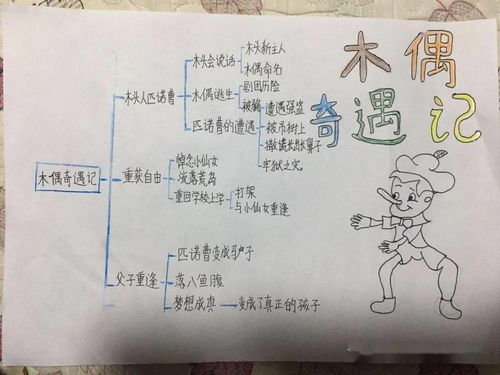 木偶
奇遇
记
木偶奇遇记
木头人匹诺曹
木头会说话
木头新主人
木偶命名
木偶逃生
剧团历险
被骗
匹诺曹的遭遇
遭遇强盗
被吊树上
撒谎长长鼻子
牢狱之灾。
重获自由
悼念小仙女
流落荒岛
重回学校上学
打架
与小仙女重逢
父子重逢
匹诺曹变成驴子
落入鱼腹
梦想成真
变成了真正的孩子